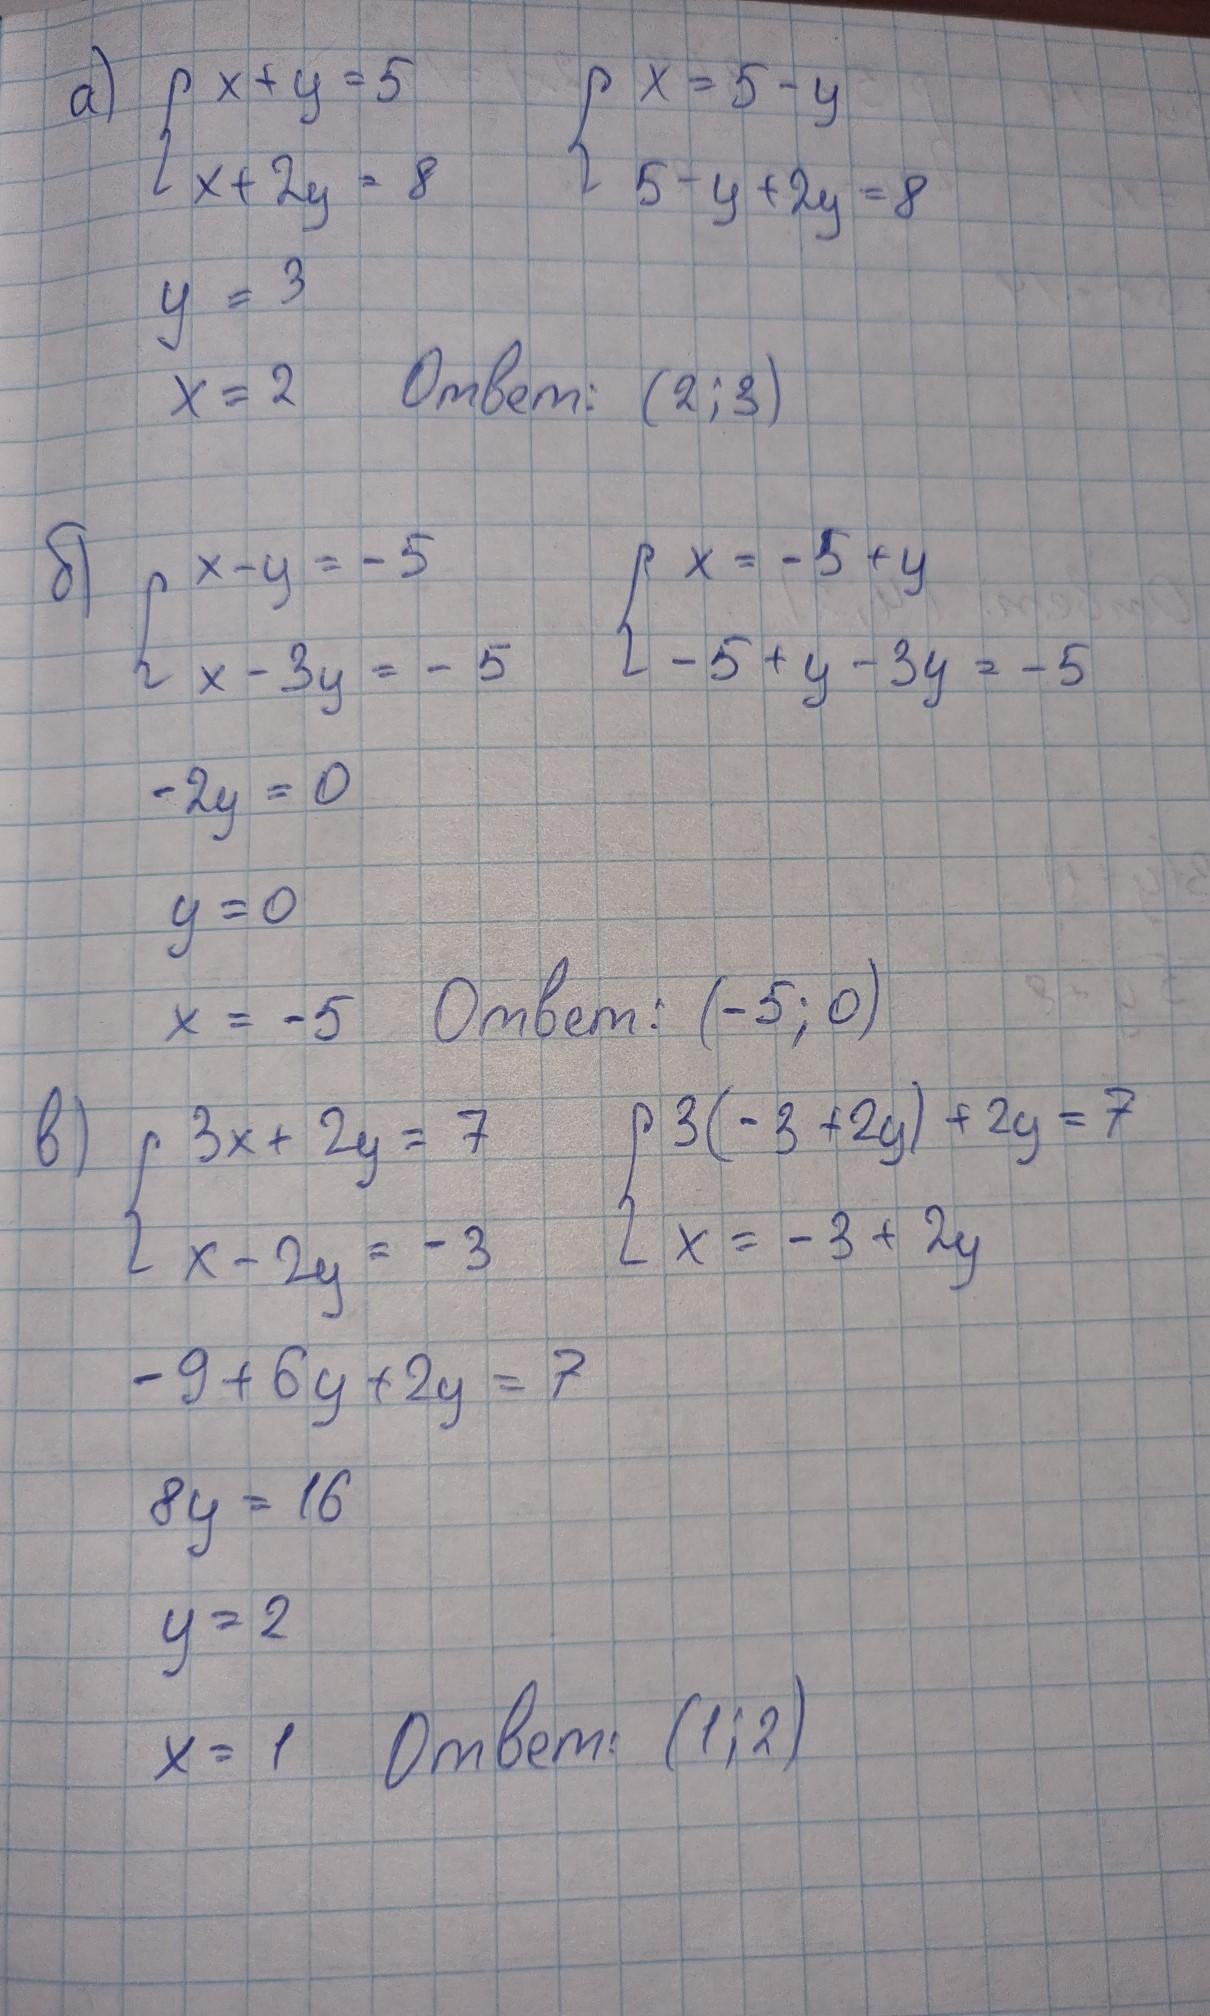 а) { x+y=5 { x=5-y
x+2y=8 5-y+2y=8
y=3
x=2 Ответ: (2;3)
б) { x-y=-5 { x=-5+y
x-3y=-5 -5+y-3y=-5
-2y=0
y=0
x=-5 Ответ: (-5;0)
в) { 3x+2y=7 { 3(-3+2y)+2y=7
x-2y=-3 x=-3+2y
-9+6y+2y=7
8y=16
y=2
x=1 Ответ: (1;2)